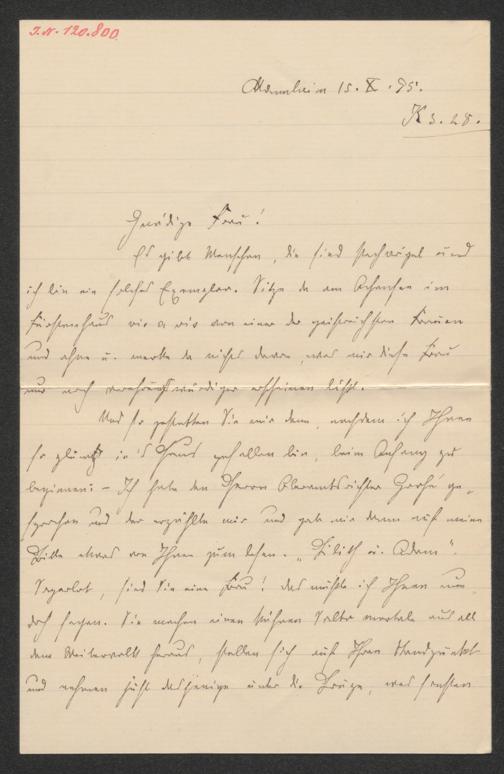 I.N. 120.800
Mannheim 15. X. 95.
K 3. 28.
Gnädige Frau!
Es gibt Menschen, die sind Pechvögel und
ich bin ein solches Exemplar. Sitze da am Achensee im
Fürstenhaus vis a vis von einer der geistreichsten Frauen
und ahne u. merke da nichts davon, was mir diese Frau
nur noch verehrungswürdiger erscheinen läßt.
Und so gestatten Sie mir denn, nachdem ich Ihnen
so plump in's Haus gefallen bin, beim Anfang zu
beginnen: – Ich habe den Herrn Oberamtsrichter ge-
sprochen und der erzählte mir und gab mir dann auf meine
Bitte etwas von Ihnen zum lesen. „Lilith u. Adam".
Sapperlot, sind Sie eine Frau! das müßte ich Ihnen nun
doch sagen. Sie machen einen kühnen Salto mortale aus all
dem heraus, stellen sich auf Ihren Standpunkt
und nehmen dasjenige unter die Lupe, was sonsten